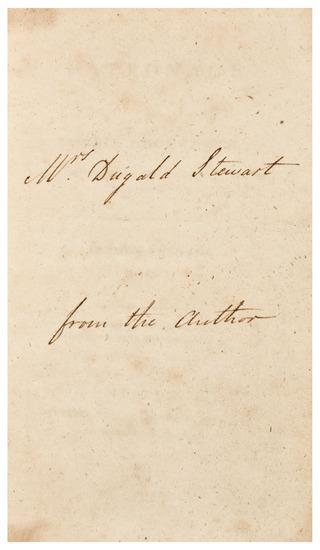 Mrs. Dugald Stewart
from the Author